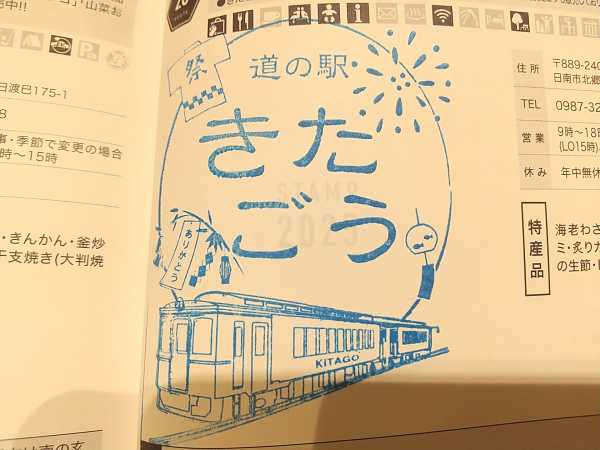 中!!
」「山菜お
日渡巳175-1
8
事・季節で変更の場合
時〜15時
・きんかん・釜炒
干支焼き(大判焼
20
祭
道の駅
きたごう
STAMP
2025
ありがとう
KITAGO
住所
〒889-240
日南市北郷
TEL
0987-32
営業
9時〜18時
(LO15時)
休み
年中無休
特産品
海老わさ
ミ・炙りカ
の生節・